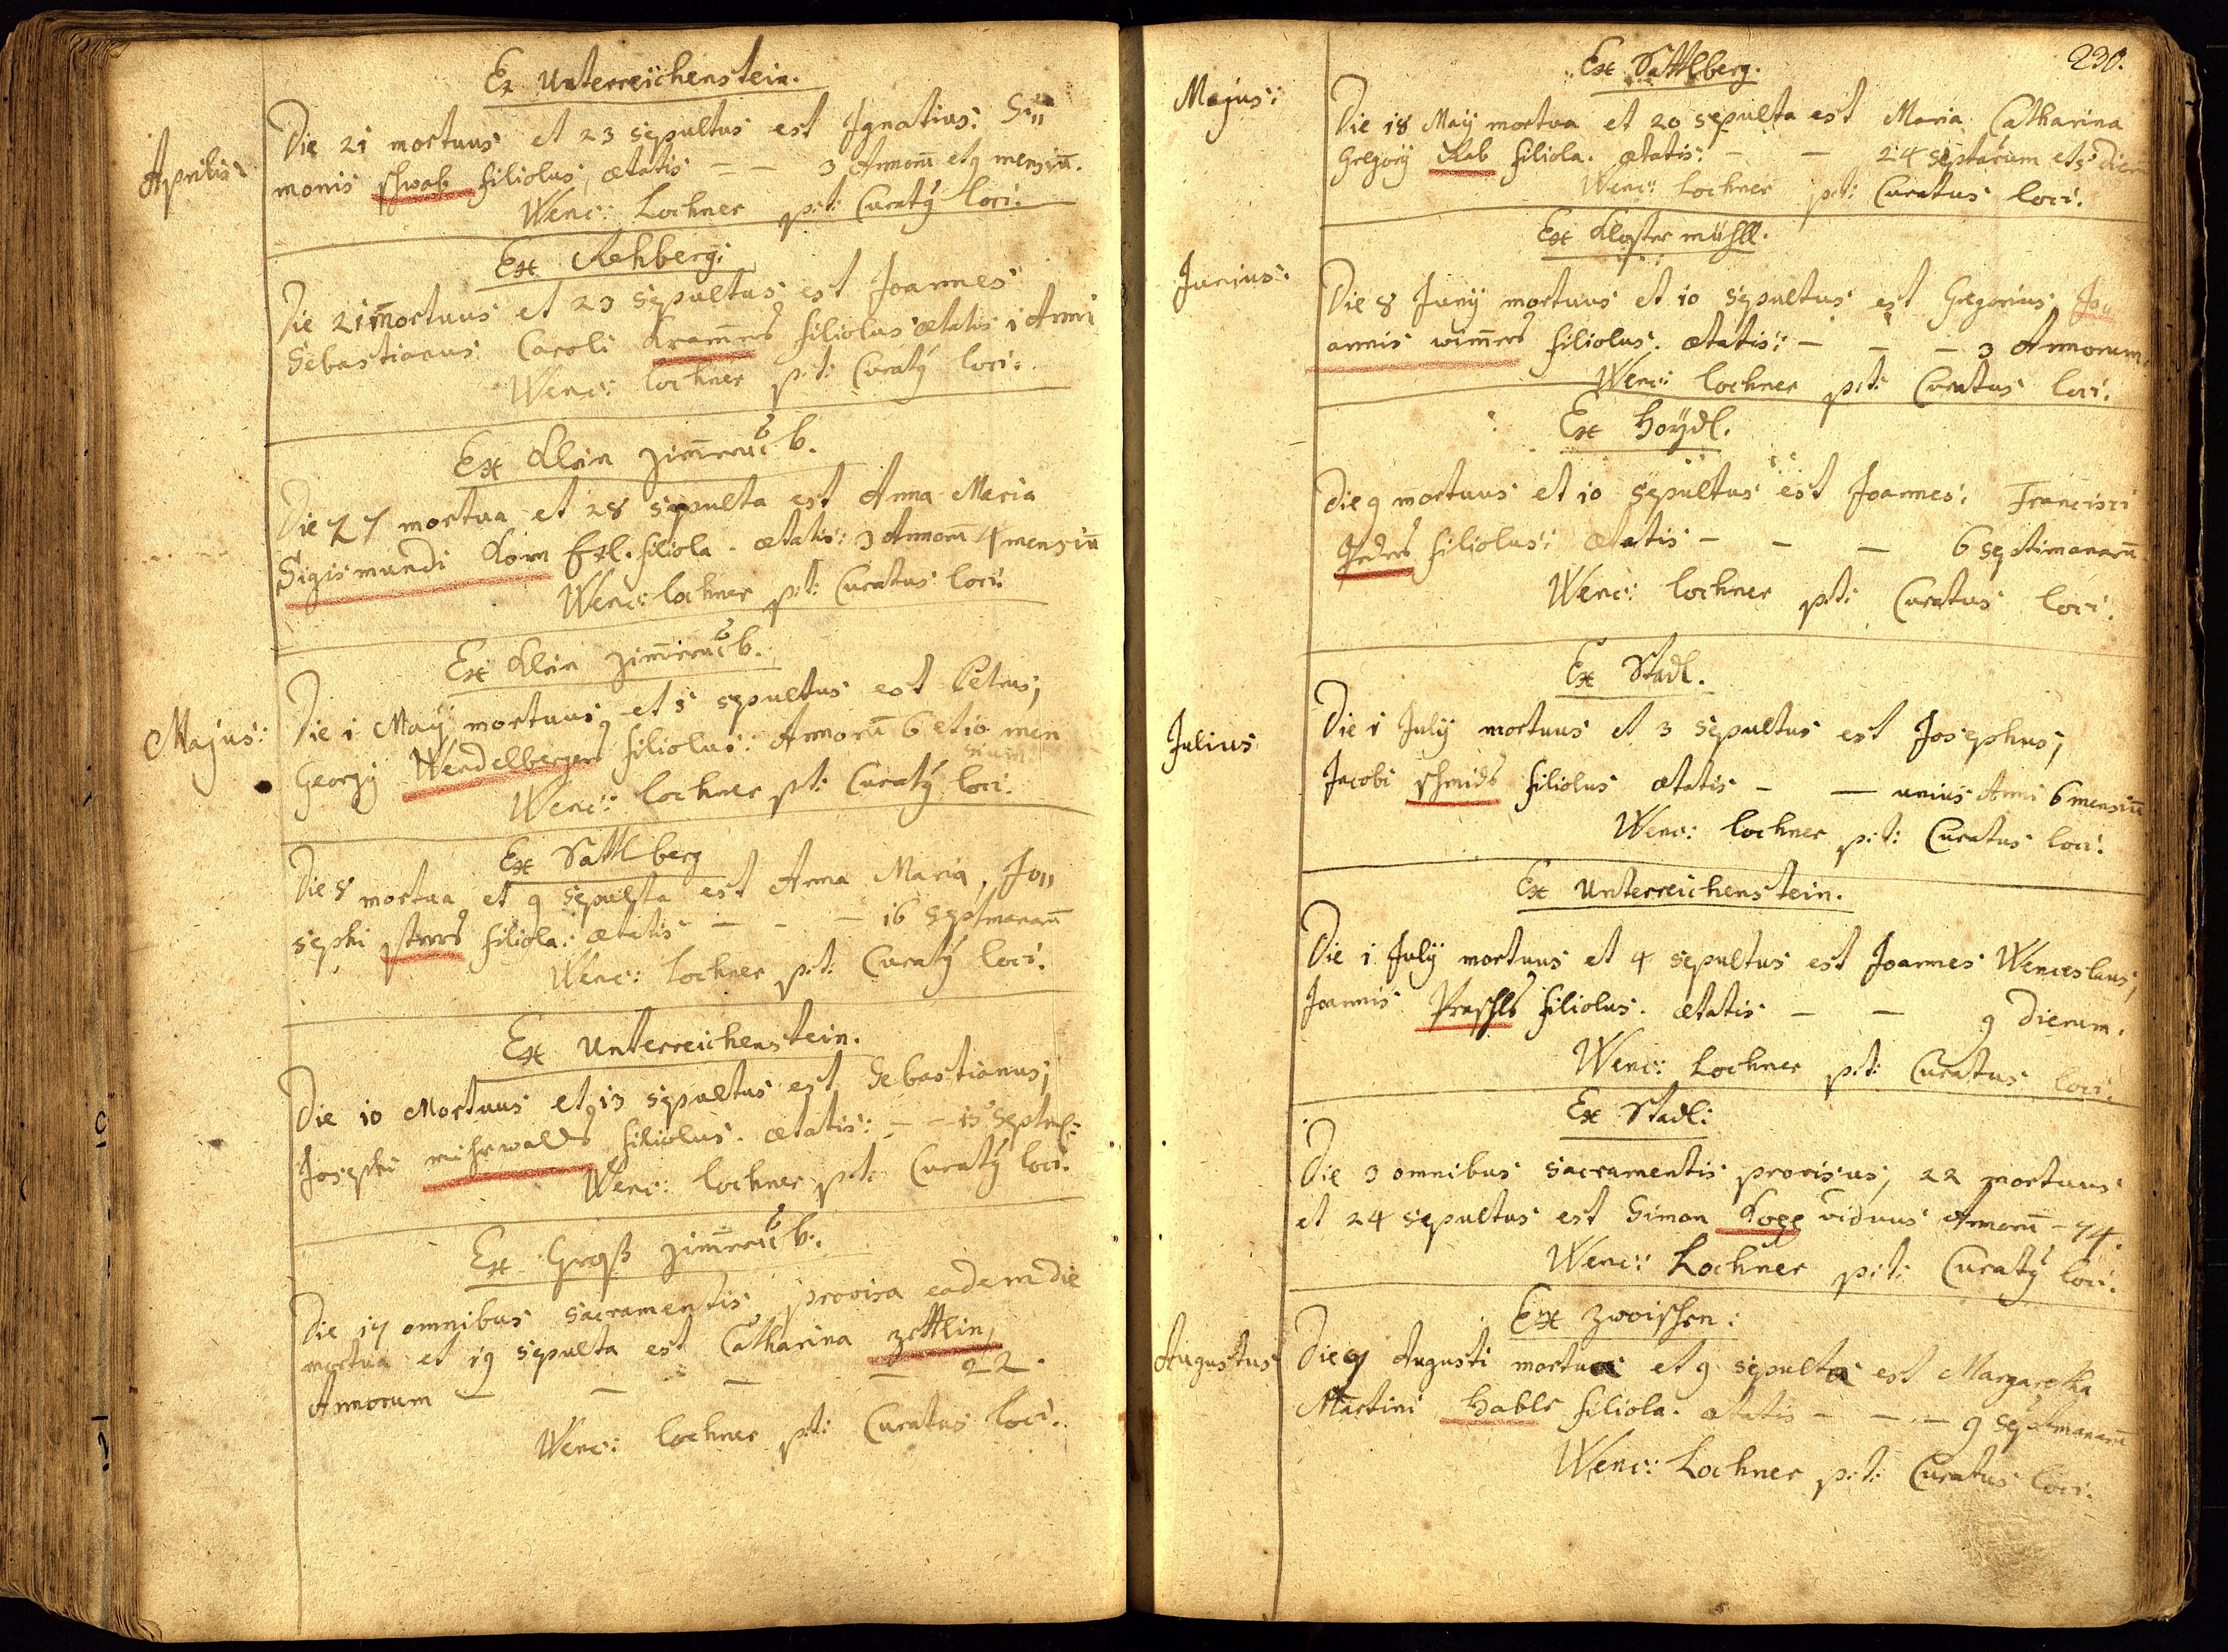 Ex Unterreichenstein.
Aprilis:
Die 21 mortuus et 23 sepultus est Ignatius: Si„
monis Schwab filiolus, ætatis — — 3 Annorū et 9 mensiū.
Wenc: Lochner p:t: Curatꝰ loci.
Ex Rehberg:
Die 21 mortuus et 23 sepultus est Joannes
Sebastianus Caroli Kram̄ers filiolus ætatis 1 Anni
Wenc: lochner p:t: Curatꝰ loci:
Ex Klein zim̄er b.
Die 27 mortua et 28 sepulta est Anna Maria
Sigismundi Korn filiola. ætatis: 3 Annorū 4 mensiū
Wenc: lochner p:t: Curatus loci:
Ex Klein zim̄er b.
Majus:
Die 1 Maÿ mortuus et 5 sepultus est Petrus,
Georgÿ Wendelbergers filiolus: Annorū 6 et 10 men
sium
Wenc: lochner p:t: Curatꝰ loci.
Ex Sattlberg
Die 8 mortua et 9 sepulta est Anna Maria, Jo„
sephi filiola: ætatis — — — 16 septimanarū
Wenc: Lochner p:t: Curatꝰ loci.
Ex Unterreichenstein.
Die 10 Mortuus et 13 sepultus est Sebastianus,
Josephi filiolus. ætatis: — — 15
Wenc: lochner p:t: Curatꝰ loci.
Ex Groß zim̄er b.
Die 17 omnibus sacramentis provisa eadem die
mortua et 19 sepulta est Catharina zettlin,
Annorum — — — — 22.
Wenc: lochner p:t: Curatus loci.
230.
Ex Sattlberg.
Majus:
Die 18 Maÿ mortua et 20 sepulta est Maria Catharina
Gregorÿ Rab filiola. ætatis: — — 24 et 5 dierū
Wenc: Lochner p:t: Curatus loci.
Ex Kloster mühll.
Junius:
Die 8 Junÿ mortuus et 10 sepultus est Gregorius, Jo„
annis wim̄ers filiolus. ætatis: — — — 3 Annorum.
Wenc: lochner p:t: Curatus loci.
Ex Hoÿdl.
Die 9 mortuus et 10 sepultus est Joannes: Francisci
filiolus: ætatis — — — 6 septimanarū
Wenc: lochner p:t: Curatus loci.
Ex Stadl.
Julius
Die 1 Julÿ mortuus et 3 sepultus est Josephus,
Jacobi Schmids filiolus ætatis — — unius Anni 6 mensiū
Wenc: lochner p:t: Curatus loci.
Ex Unterreichenstein.
Die 1 Julÿ mortuus et 4 sepultus est Joannes Wenceslaus,
Joannis Praschls filiolus. ætatis — — 9 dierum.
Wenc: Lochner p:t: Curatus loci.
Ex Stadl:
Die 3 omnibus sacramentis provisus, 22 mortuus
et 24 sepultus est Simon viduus Annorū — 74.
Wenc: Lochner p:t: Curatꝰ loci.
Ex Zwoischen:
Augustus
Die 7 Augusti mortua et 9 sepulta est Margaretha
Martini Hable filiola. ætatis — — — 9 septimanarū
Wenc: Lochner p:t: Curatus loci.